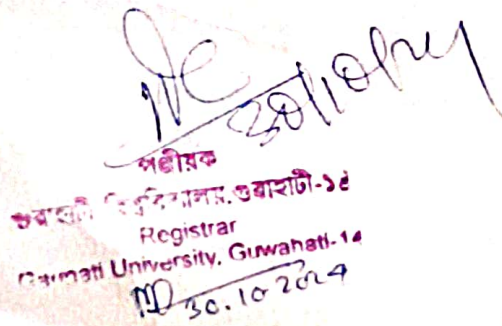 পঞ্জীয়ক
গুৱাহাটী বিশ্ববিদ্যালয়, গুৱাহাটী-১৪
Registrar
Gauhati University, Guwahati-14
30.10.2024